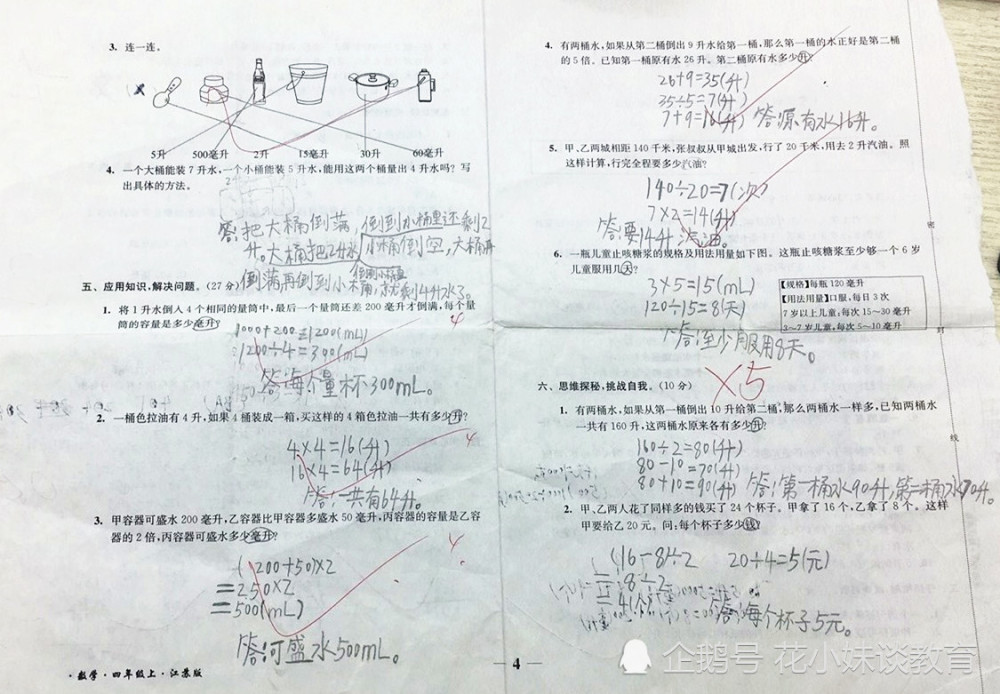 3. 连一连。
5升 500毫升 2升 15毫升 30升 60毫升
4. 一个大桶能装7升水,一个小桶能装5升水,能用这两个桶量出4升水吗? 写
出具体的方法。
答:把大桶倒满,倒到小桶里还剩2
升。大桶把2升水小桶倒空,大桶再
倒到小桶
倒满再倒到小桶,就剩4升水了。
五、应用知识,解决问题。(27分)
1. 将1升水倒入4个相同的量筒中,最后一个量筒还差200毫升才倒满,每个量
筒的容量是多少毫升?
1000+200=1200(mL)
1200÷4=300(mL)
答:每个量杯300mL。
4
2. 一桶色拉油有4升,如果4桶装成一箱,买这样的4箱色拉油一共有多少升?
4×4=16(升)
16×4=64(升)
答:一共有64升。
4
3. 甲容器可盛水200毫升,乙容器比甲容器多盛水50毫升,丙容器的容量是乙容
器的2倍,丙容器可盛水多少毫升?
(200+50)×2
=250×2
=500(mL)
答:可盛水500mL。
4
·数学·四年级上·江苏版
4. 有两桶水,如果从第二桶倒出9升水给第一桶,那么第一桶的水正好是第二桶
的5倍。已知第一桶原有水26升。第二桶原有水多少升?
26+9=35(升)
35÷5=7(升)
7+9=16(升) 答:原有水16升。
5. 甲、乙两城相距140千米,张叔叔从甲城出发,行了20千米,用去2升汽油。照
这样计算,行完全程要多少汽油?
140÷20=7(次)
7×2=14(升)
答:要14升汽油。
6. 一瓶儿童止咳糖浆的规格及用法用量如下图。这瓶止咳糖浆至少够一个6岁
儿童服用几天?
【规格】每瓶120毫升
【用法用量】口服,每日3次
7岁以上儿童,每次15~30毫升
3~7岁儿童,每次5~10毫升
3×5=15(mL)
120÷15=8(天)
答:至少服用8天。
×5
六、思维探秘,挑战自我。(10分)
1. 有两桶水,如果从第一桶倒出10升给第二桶,那么两桶水一样多,已知两桶水
一共有160升,这两桶水原来各有多少升?
160÷2=80(升)
80-10=70(升)
80+10=90(升) 答:第一桶水90升,第二桶水70升。
2. 甲、乙两人花了同样多的钱买了24个杯子。甲拿了16个,乙拿了8个。这样
甲要给乙20元。问:每个杯子多少钱?
(16-8)÷2 20÷4=5(元)
=8÷2
=4(个)
答:每个杯子5元。
密
封
线
4
企鹅号 花小妹谈教育